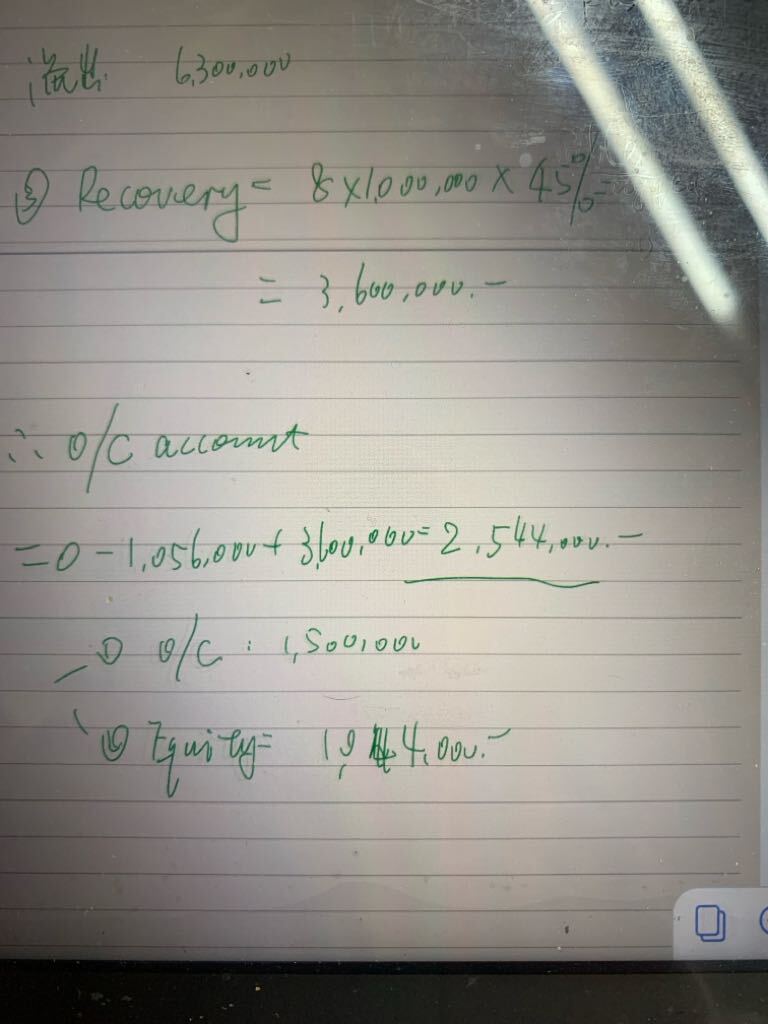 流出 6,300,000
③ Recovery = 8 x 1,000,000 x 45% =
= 3,600,000.-
∴ O/C account
= 0 - 1,056,000 + 3,600,000 = 2,544,000.-
① O/C : 1,500,000
② Equity =